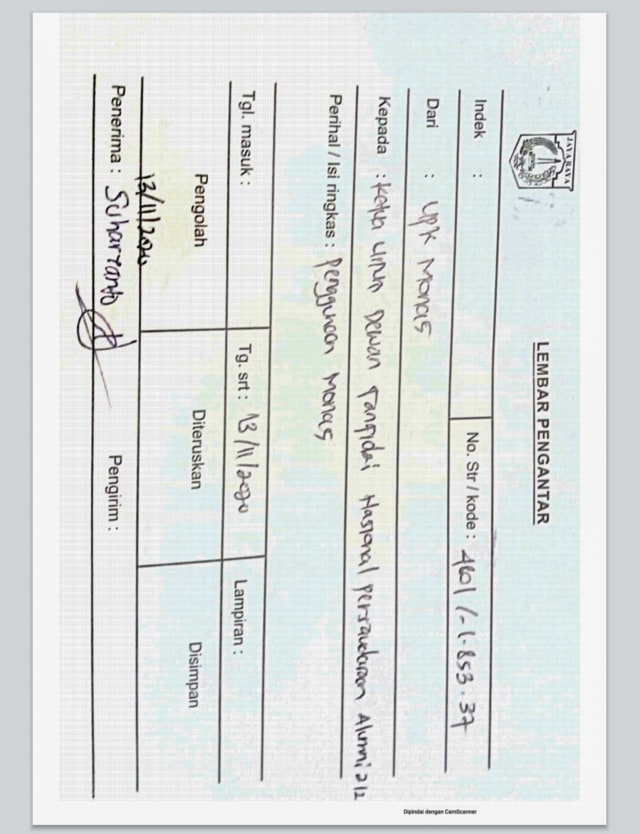 JAYA RAYA
LEMBAR PENGANTAR
Indek : No. Str / kode : 4601 /-1.853.37
Dari : UPK Monas
Kepada : Ketua Umum Dewan Tanfidzi Nasional persaudaraan Alumni 212
Perihal / Isi ringkas : penggunaan Monas
Tgl. masuk : Tg. srt : 13/11/2020 Lampiran :
Pengolah Diteruskan Disimpan
13/11/2020
Penerima : Suharyanto Pengirim :
Dipindai dengan CamScanner